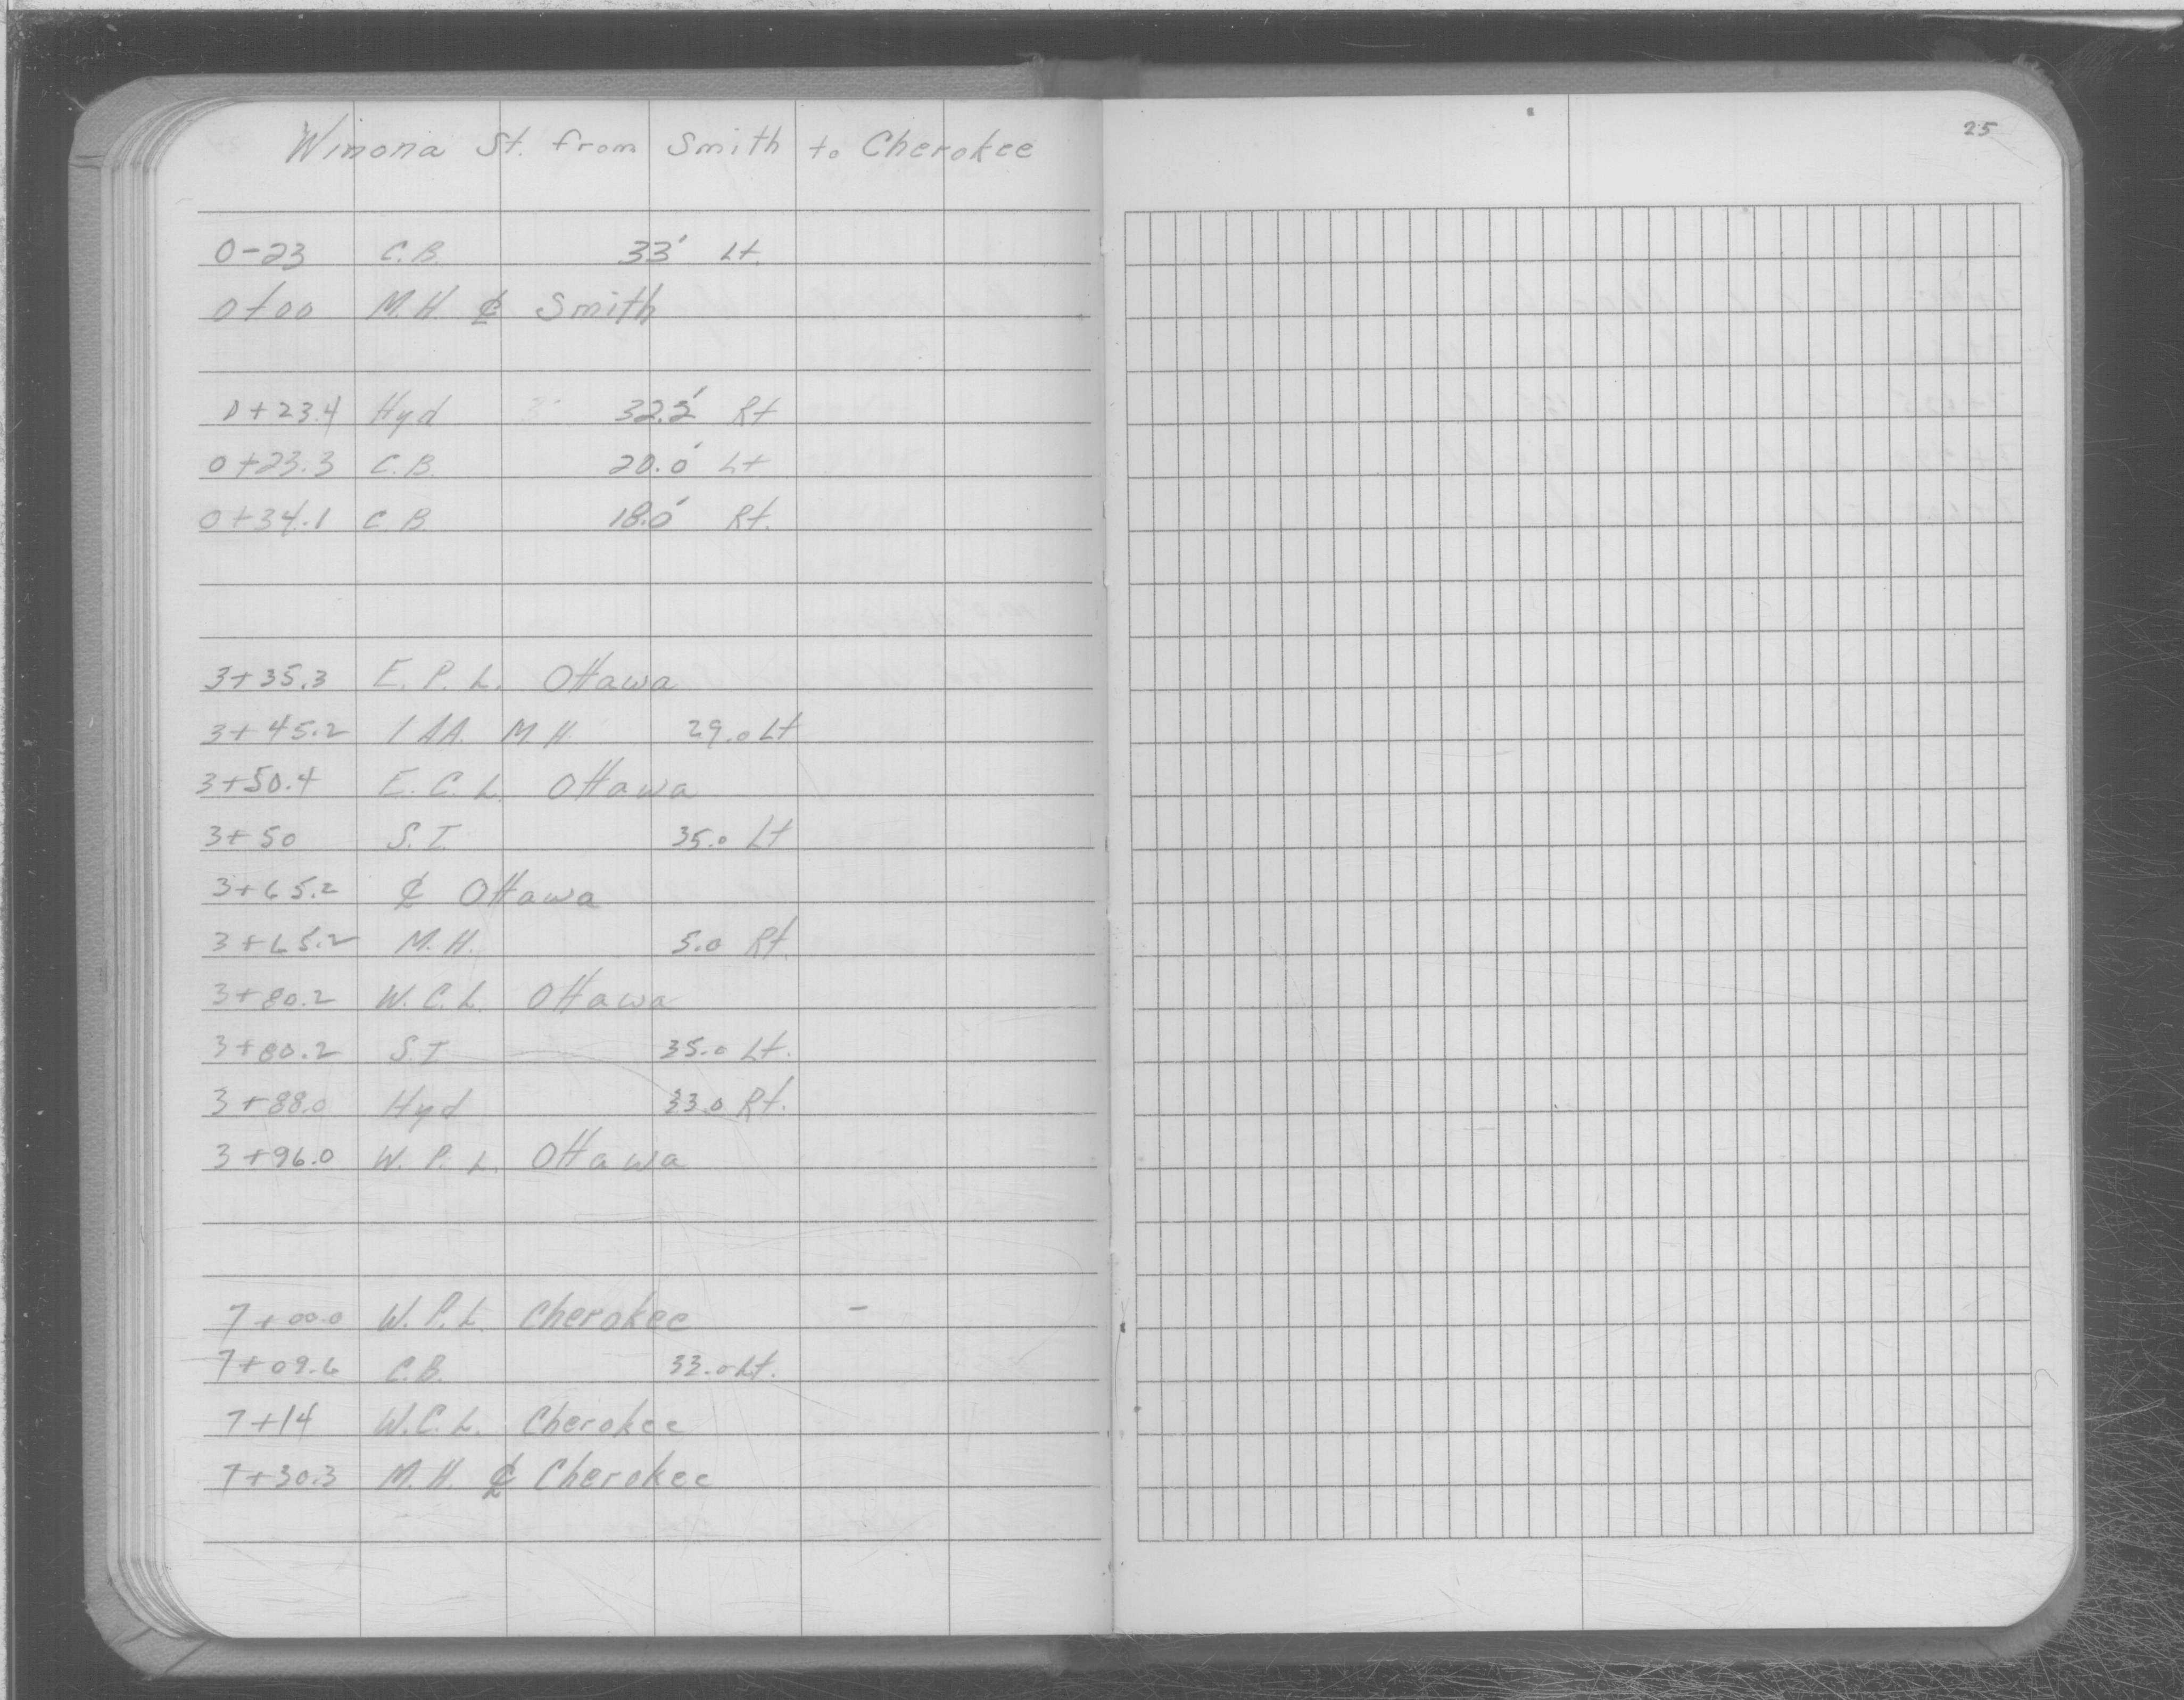 Winona St. from Smith to Cherokee
25
0-23 C.B. 33' Lt.
0+00 M.H. ℄ Smith
0+23.4 Hyd 32.2' Rt
0+23.3 C.B. 20.0' Lt
0+34.1 C.B. 18.0' Rt.
3+35.3 E.P.L. Ottawa
3+45.2 M H 29.0 Lt
3+50.4 E.C.L. Ottawa
3+50 S.I. 35.0 Lt
3+65.2 ℄ Ottawa
3+65.2 M.H. 5.0 Rt.
3+80.2 W.C.L. Ottawa
3+80.2 S.I 35.0 Lt.
3+88.0 Hyd 33.0 Rt.
3+96.0 W.P.L. Ottawa
7+00.0 W.P.L. Cherokee -
7+09.6 C.B. 33.0 Lt.
7+14 W.C.L. Cherokee
7+30.3 M.H. ℄ Cherokee